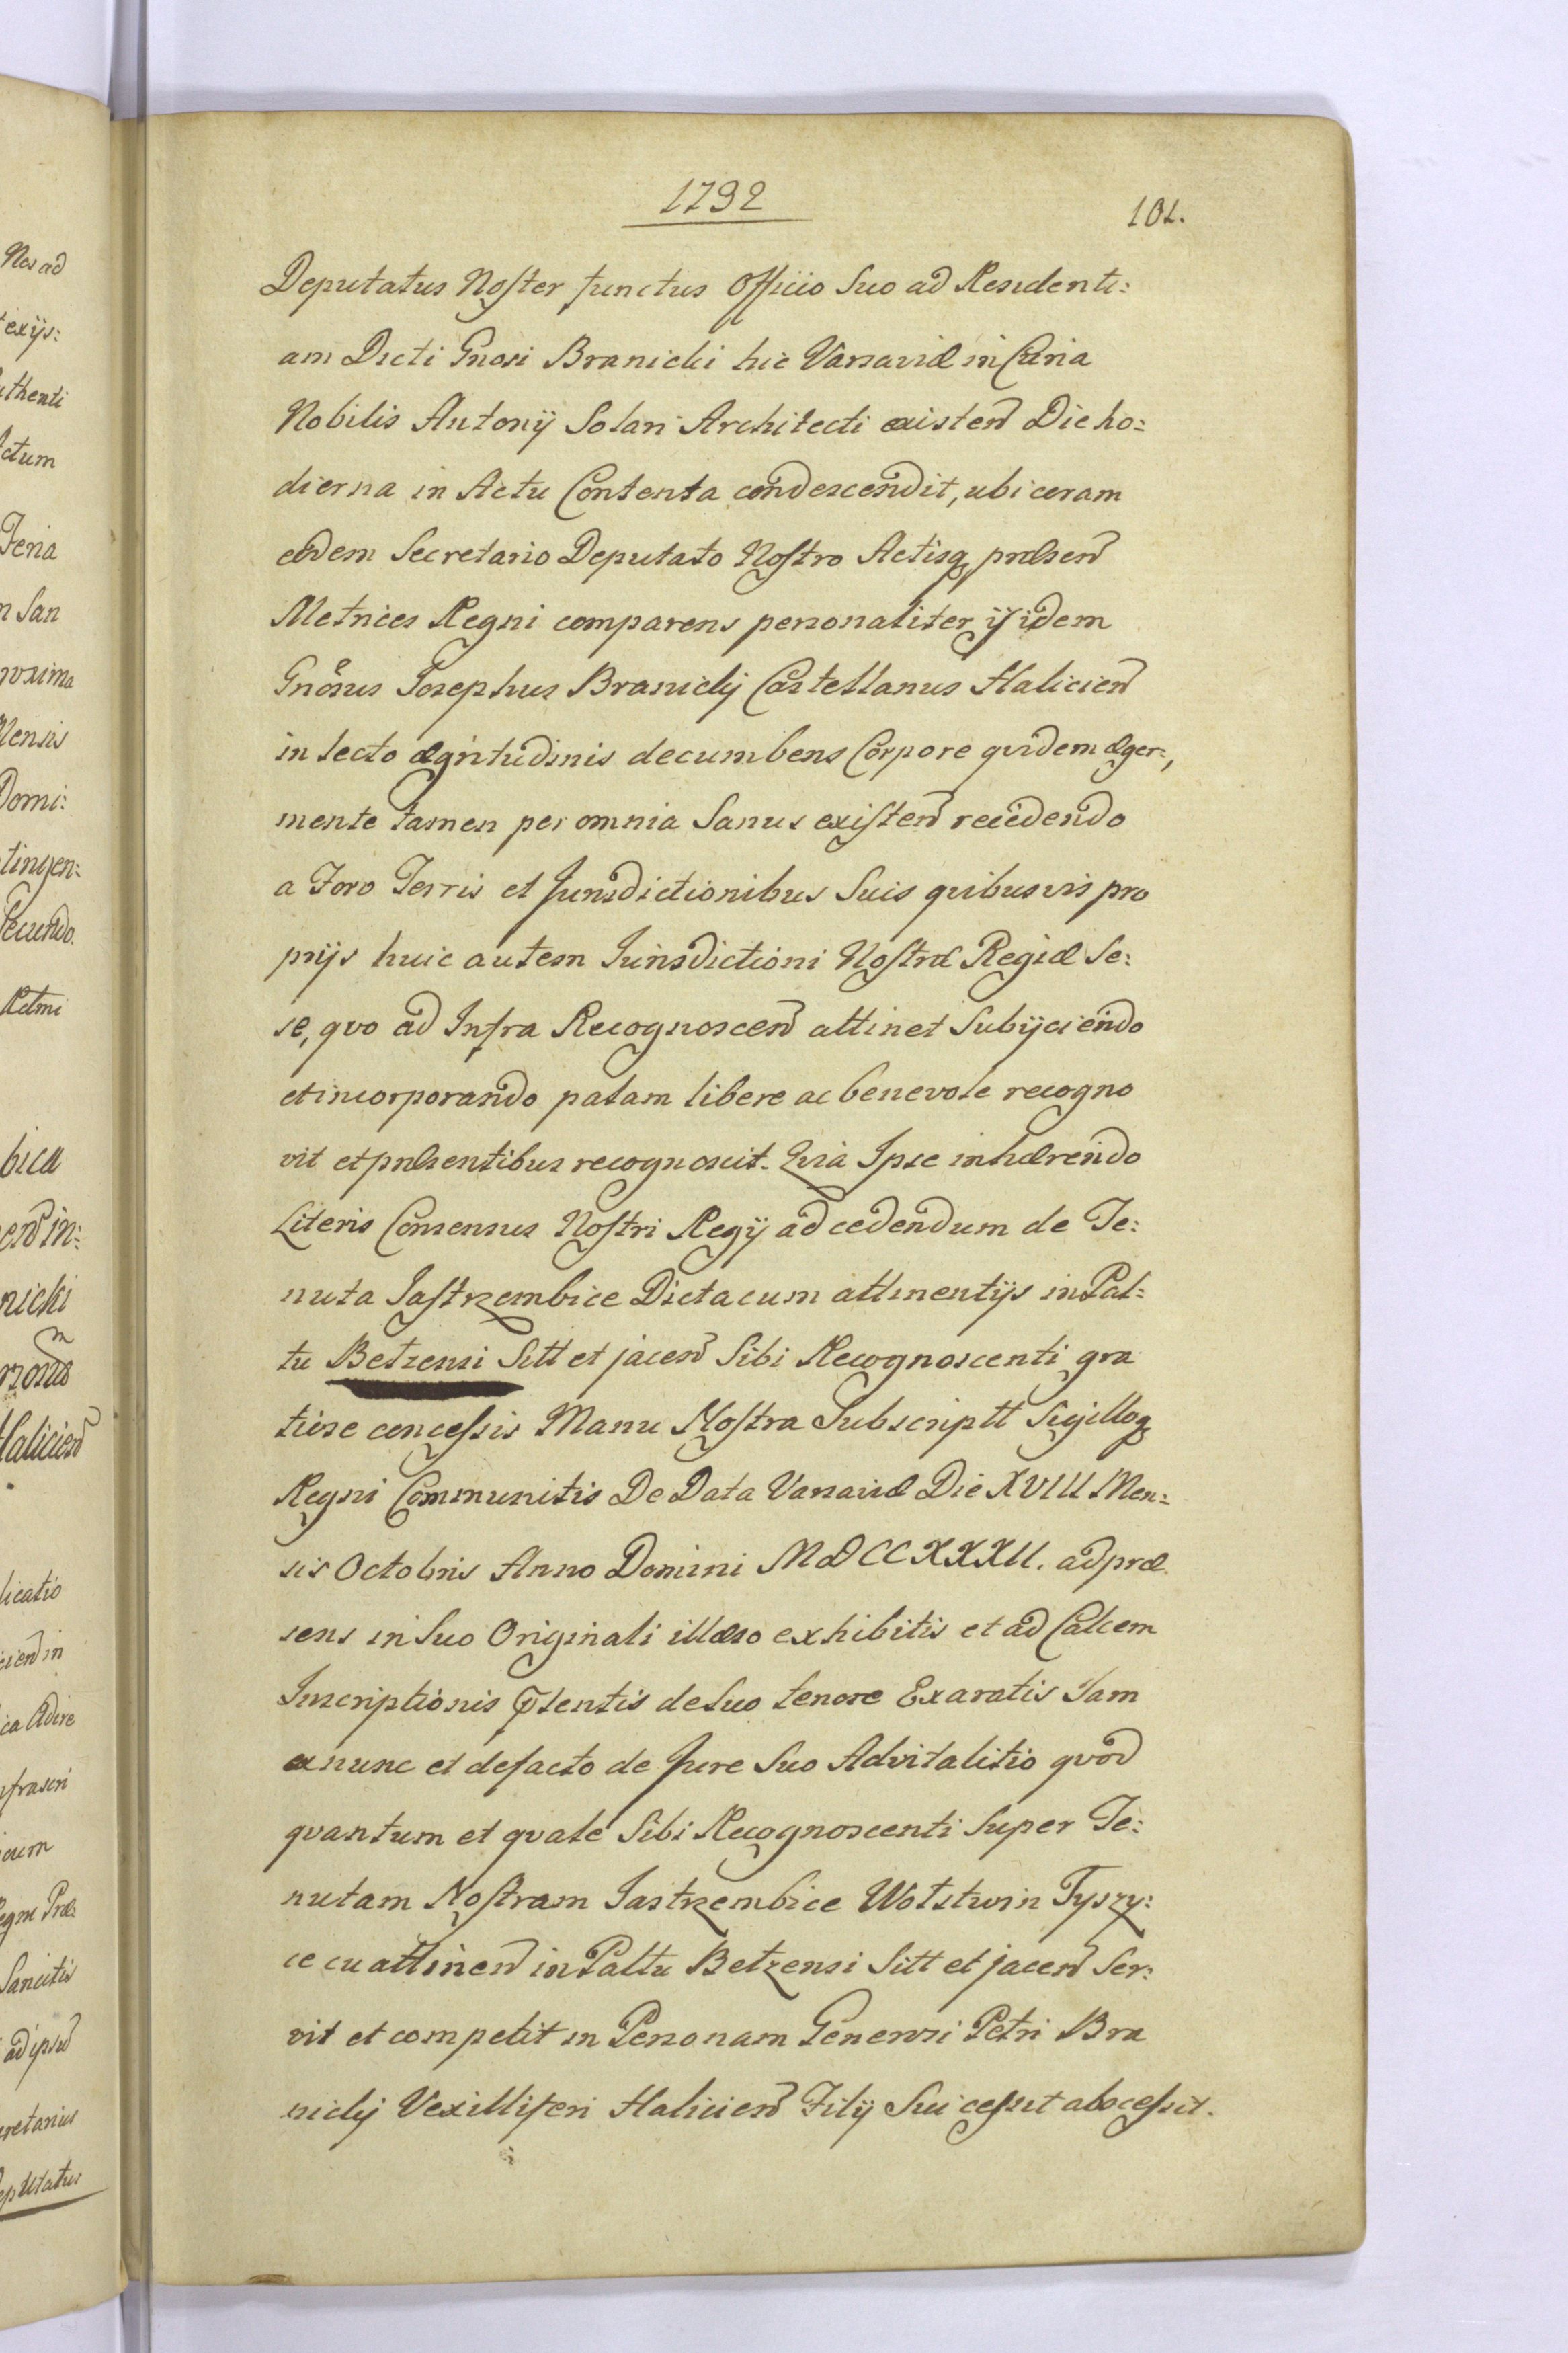 1732
101.
Deputatus Noster functus Officio Suo ad Residenti:
am Dicti Gnosi Branicki hic Varsaviæ in Curia
Nobilis Antonij Solari Architecti existen Die ho:
dierna in Actu Contenta condescendit, ubi coram
eodem Secretario Deputato Nostro Actisq præsen
Metrices Regni comparens personaliter
Gnosus Josephus Branickij Castellanus Halicien
in lecto ægritudinis decumbens Corpore qvidem æger,
mente tamen per omnia Sanus existen recedendo
a Foro Terris et Jurisdictionibus Suis qvibusvis pro
prijs huic autem Jurisdictioni Nostræ Regiæ Se:
se, qvo ad Infra Recognoscen attinet Subijciendo
et incorporando palam libere ac benevole recogno
vit et præsentibus recognoscit. Qvia Ipse inhærendo
Literis Consensus Nostri Regij ad cedendum de Te:
nuta Jastrzembice Dicta cum attinentijs in Pal:
tu Betzensi Sitt et jacen Sibi Recognoscenti gra
tiose concessis Manu Nostra Subscriptt Sigilloq
Regni Communitis De Data Varsaviæ Die XVIII Men:
sis Octobris Anno Domini MDCCXXXII. ad præ
sens in Suo Originali illæso exhibitis et ad Calcem
Inscriptionis de Suo tenore Exaratis Jam
ex nunc et defacto de Jure Suo Advitalitio qvod
qvantum et qvale Sibi Recognoscenti Super Te:
nutam Nostram Jastrzembice Wolstwin Tyszy:
ce cu attinen in Paltu Betzensi Sitt et jacen Ser:
vit et competit in Personam Generosi Petri Bra
nickij Vexilliferi Halicien Filij Sui cessit abscessit.
Nos ad
exijs:
uthenti
Actum
Feria
n San
oxima
llensis
Domi:
tingen:
Secundo
Retmi
bica
en in:
nicki
Halicien
licatio
cien in
ca Adire
nfrascri
cum
Regni Præ:
Sancitis
ad ipsu
cretarius
Deputatus